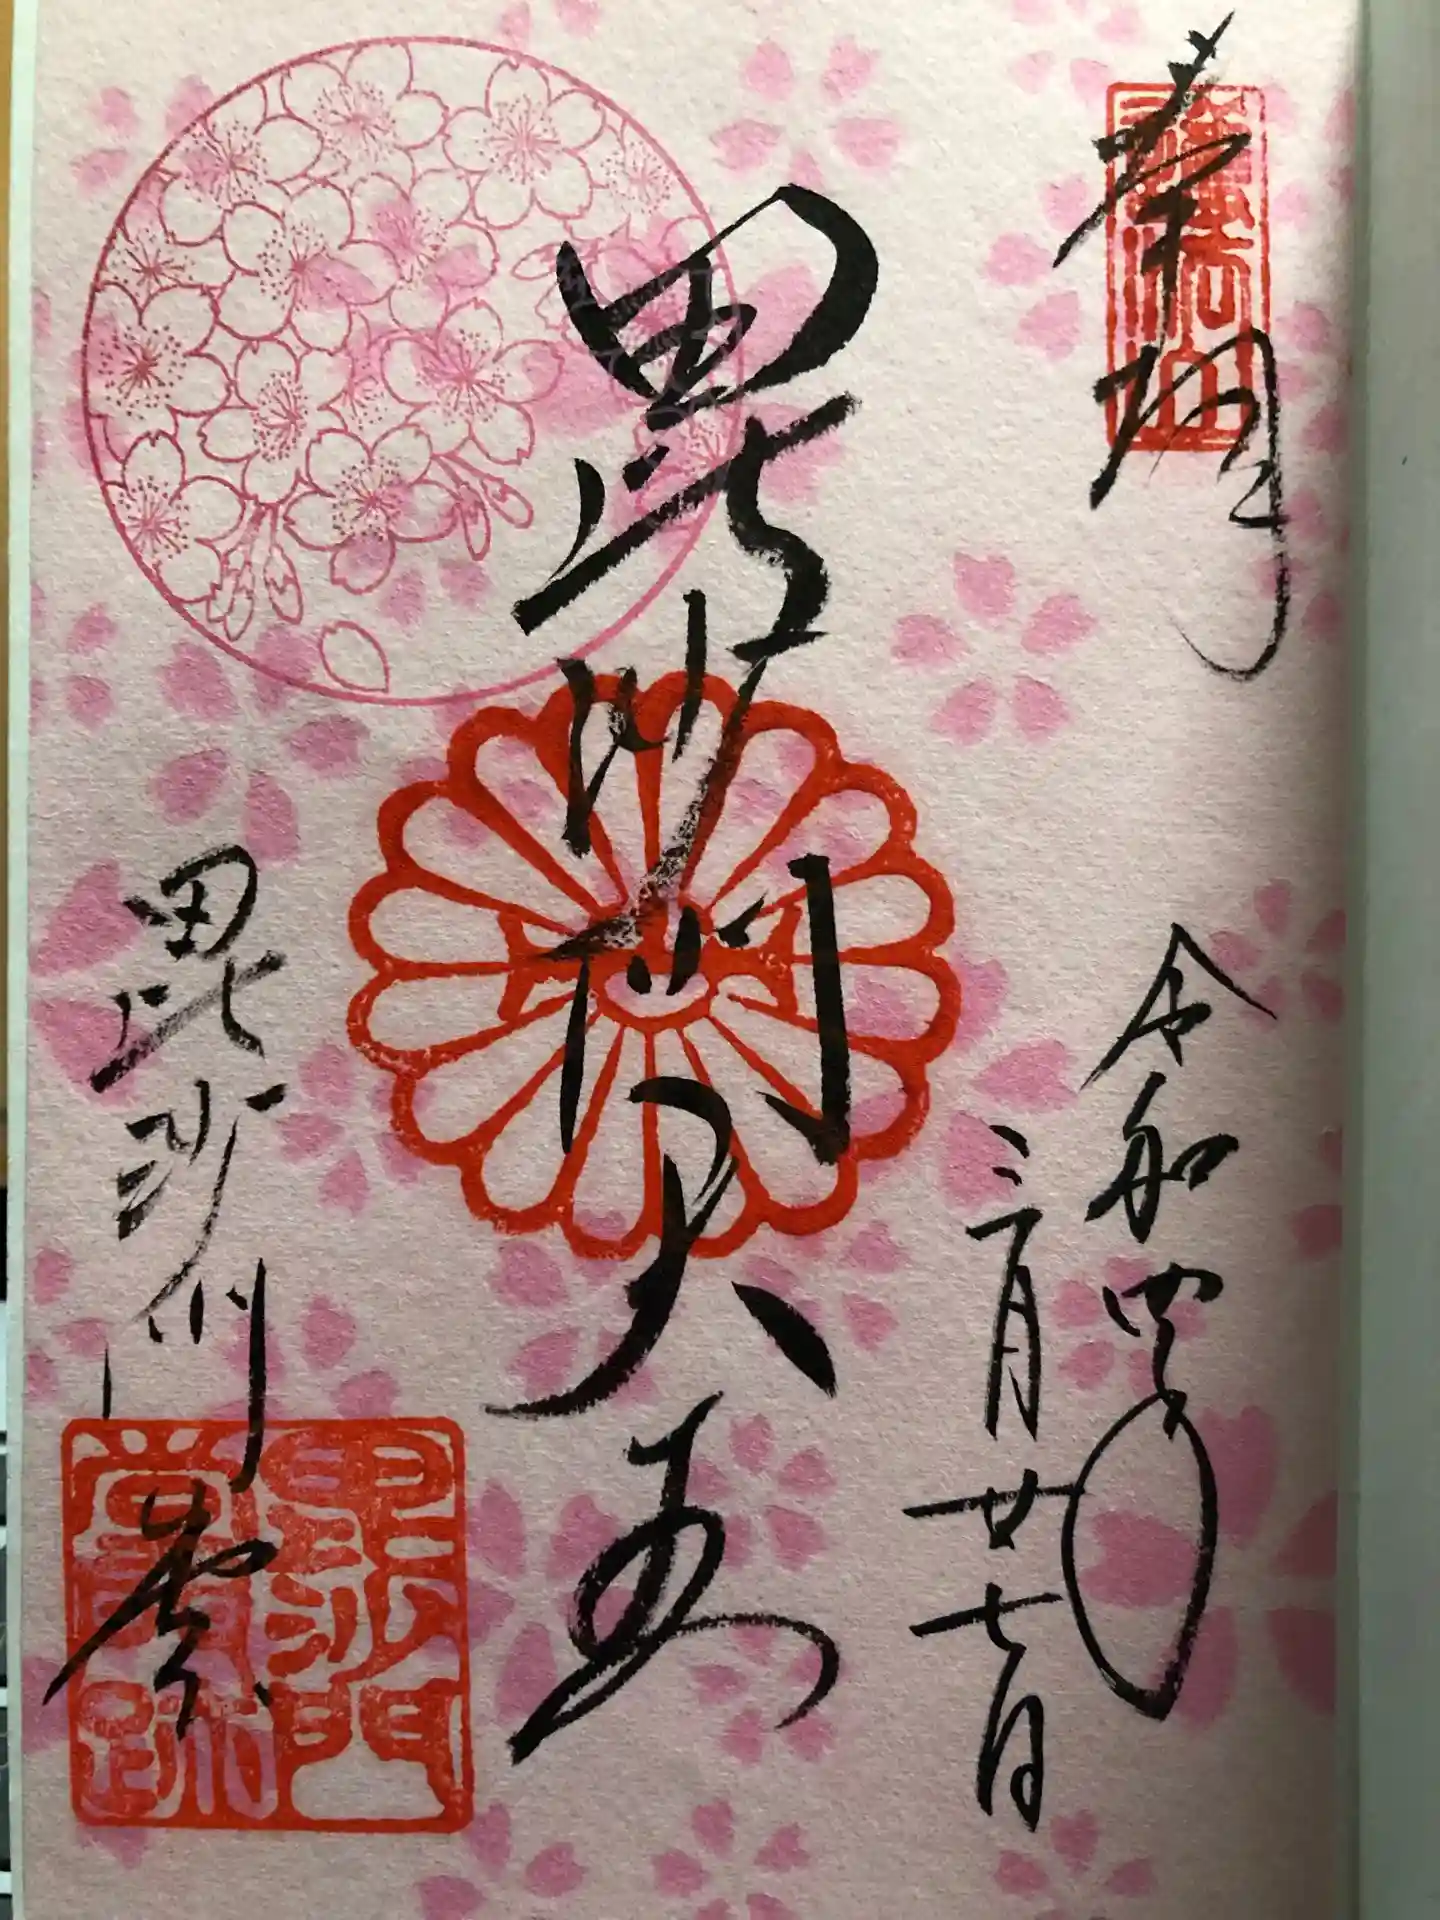 奉拝
護法山
令和四年
三月廿七日
毘沙門天王
毘沙門堂
毘沙門
堂跡